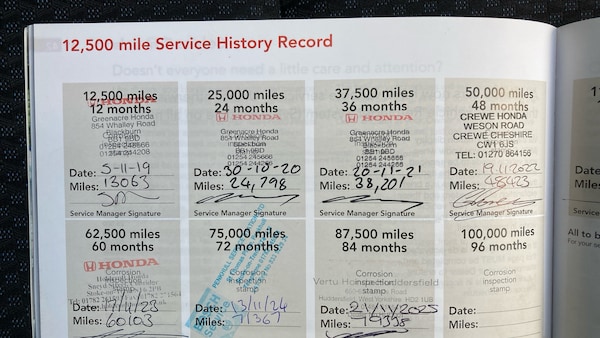 12,500 mile Service History Record
12,500 miles
12 months
HONDA
Greenacre Honda
854 Whalley Road
Blackburn
BB1 9BD
01254 245666
01254 244208
Date: 5-11-19
Miles: 13063
Service Manager Signature
25,000 miles
24 months
HONDA
Greenacre Honda
854 Whalley Road
Blackburn
BB1 9BD
01254 245666
01254 244208
Date: 30-10-20
Miles: 24,798
Service Manager Signature
37,500 miles
36 months
HONDA
Greenacre Honda
854 Whalley Road
Blackburn
BB1 9BD
01254 245666
01254 244208
Date: 20-11-21
Miles: 38,201
Service Manager Signature
50,000 miles
48 months
CREWE HONDA
WESON ROAD
CREWE CHESHIRE
CW1 6JS
TEL: 01270 864156
Date: 19.11.2022
Miles: 48423
Service Manager Signature
62,500 miles
60 months
HONDA
Corrosion
inspection
stamp
Date:
Miles: 60103
75,000 miles
72 months
Corrosion
inspection
stamp
Date: 13/11/24
Miles: 71367
87,500 miles
84 months
Corrosion
inspection
stamp
Vertu Honda Huddersfield
Huddersfield, West Yorkshire HD2 1UB
Date:
Miles:
100,000 miles
96 months
Corrosion
inspection
stamp
Date:
Miles:
Date
Miles
Service
All to b
For your se